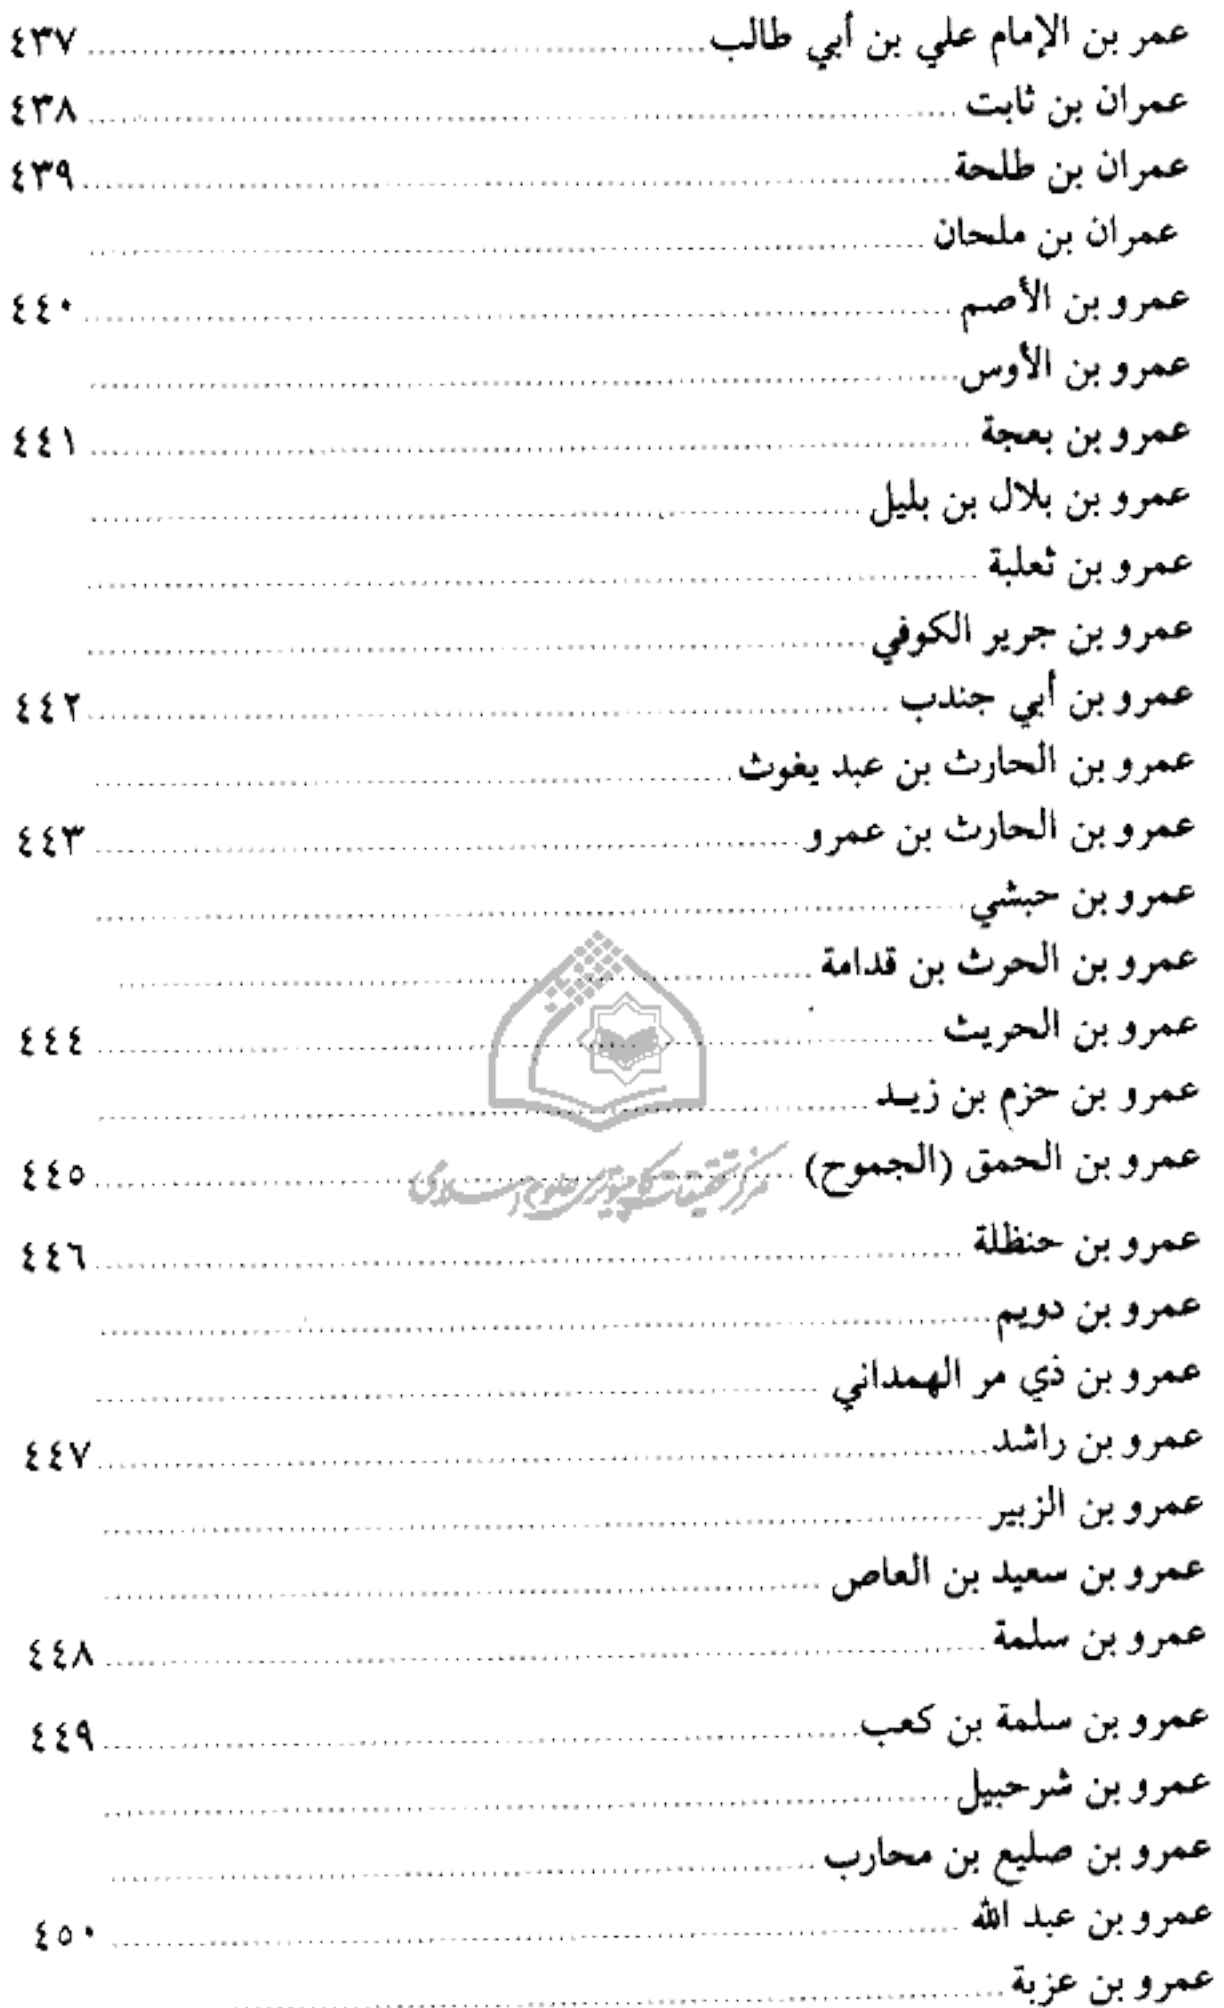 عمر بن الإمام علي بن أبي طالب ٤٣٧
عمران بن ثابت ٤٣٨
عمران بن طلحة ٤٣٩
عمران بن ملحان
عمرو بن الأصم ٤٤٠
عمرو بن الأوس
عمرو بن بعجة ٤٤١
عمرو بن بلال بن بليل
عمرو بن ثعلبة
عمرو بن جرير الكوفي
عمرو بن أبي جندب ٤٤٢
عمرو بن الحارث بن عبد يغوث
عمرو بن الحارث بن عمرو ٤٤٣
عمرو بن حبشي
عمرو بن الحرث بن قدامة
عمرو بن الحريث ٤٤٤
عمرو بن حزم بن زيد
عمرو بن الحمق (الجموح) ٤٤٥
مرکز تحقیقات کامپیوتری علوم اسلامی
عمرو بن حنظلة ٤٤٦
عمرو بن دويم
عمرو بن ذي مر الهمداني
عمرو بن راشد ٤٤٧
عمرو بن الزبير
عمرو بن سعيد بن العاص
عمرو بن سلمة ٤٤٨
عمرو بن سلمة بن كعب ٤٤٩
عمرو بن شرحبيل
عمرو بن صليع بن محارب
عمرو بن عبد الله ٤٥٠
عمرو بن عزية